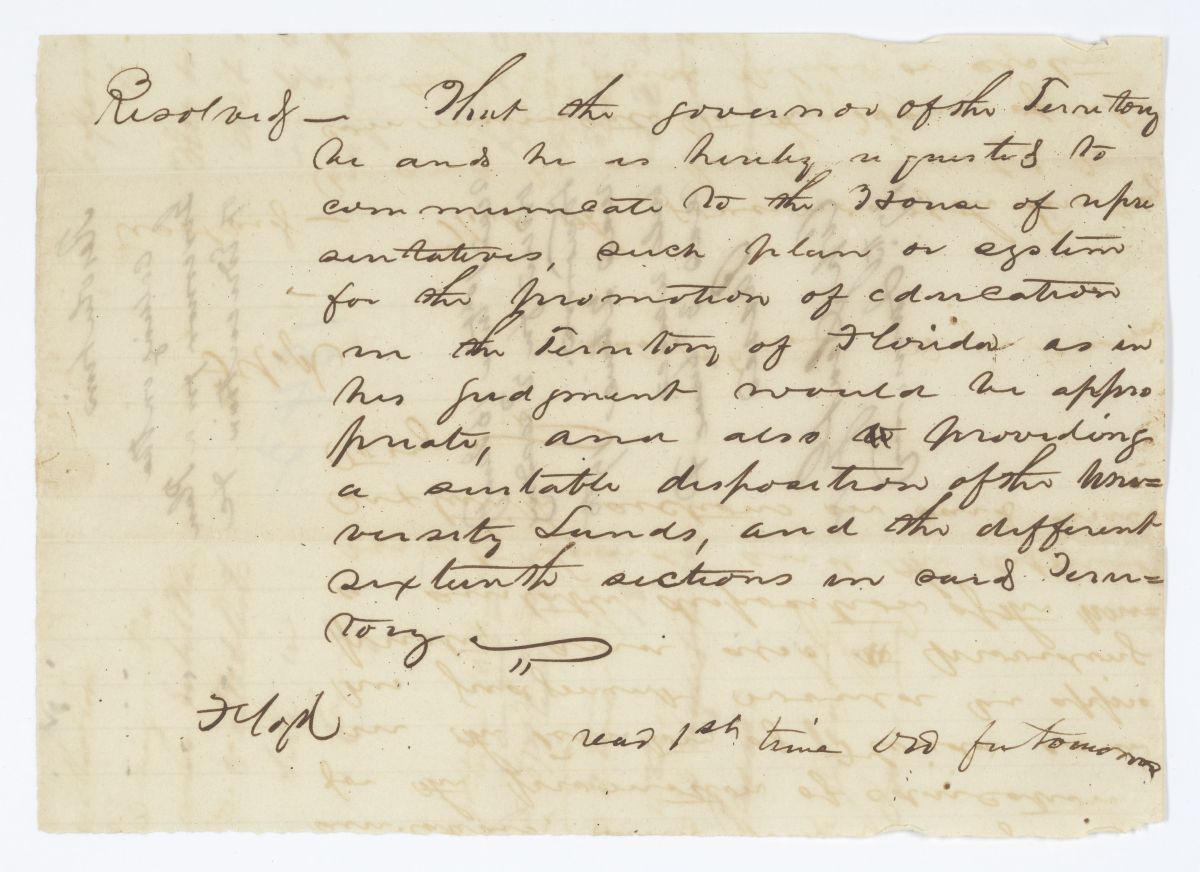 Resolved — That the governor of the Territory
be and he is hereby requested to
communicate to the House of repre
sentatives, such plan or system
for the promotion of education
in the Territory of Florida as in
his judgment would be appro
priate, and also providing
a suitable disposition of the Uni=
versity Lands, and the different
sixteenth sections in said Terri=
tory
Floyd
read 1st time Ord for tomorrow